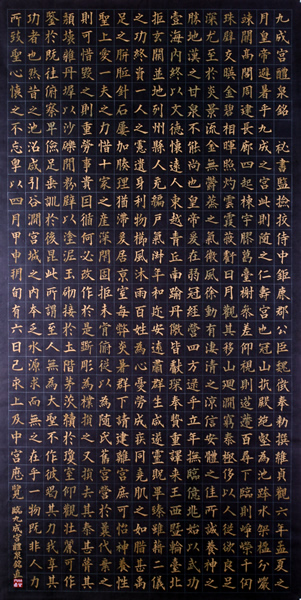 九成宮醴泉銘 秘書監檢校侍中鉅鹿郡公臣魏徵奉勅撰維貞觀六年孟夏之
月皇帝避暑乎九成之宮此則隨之仁壽宮也冠山抗殿絕壑為池跨水架楹分巖
竦闕高閣周建長廊四起棟宇膠葛臺榭參差仰視則迢遰百尋下臨則崢嶸千仞
珠璧交暎金碧相暉照灼雲霞蔽虧日月觀其移山迴澗窮泰極侈以人從欲良足
深尤至於炎景流金無鬱蒸之氣微風徐動有淒清之涼信安體之佳所誠養神之勝
地漢之甘泉不能尚也皇帝爰在弱冠經營四方逮乎立年撫臨億兆始以武功
壹海內終以文德懷遠人東越青丘南踰丹儌皆獻琛奉贄重譯來王西暨輪臺北
拒玄闕並地列州縣人充編戶氣淑年和邇安遠肅群生咸遂靈貺畢臻雖藉二儀
之功終資一人之慮遺身利物櫛風沐雨百姓為心憂勞成疾同堯肌之如腊甚禹
足之胼胝針石屢加腠理猶滯爰居京室每弊炎暑群下請建離宮庶可怡神養性
聖上愛一夫之力惜十家之產深閉固拒未肯俯從以為隨氏舊宮營於曩代棄之
則可惜毀之則重勞事貴因循何必改作於是斲彫為樸損之又損去其泰甚葺其
頹壞雜丹墀以沙礫間粉壁以塗泥玉砌接於土階茅茨續於瓊室仰觀壯麗可作
鑒於既往俯察卑儉足垂訓於後昆此所謂至人無為大聖不作彼竭其力我享其
功者也然昔之池沼咸引谷澗宮城之內本乏水源求而無之在乎一物既非人力
所致聖心懷之不忘粵以四月甲申朔旬有六日己亥上及中宮應覽 臨九成宮醴泉銘